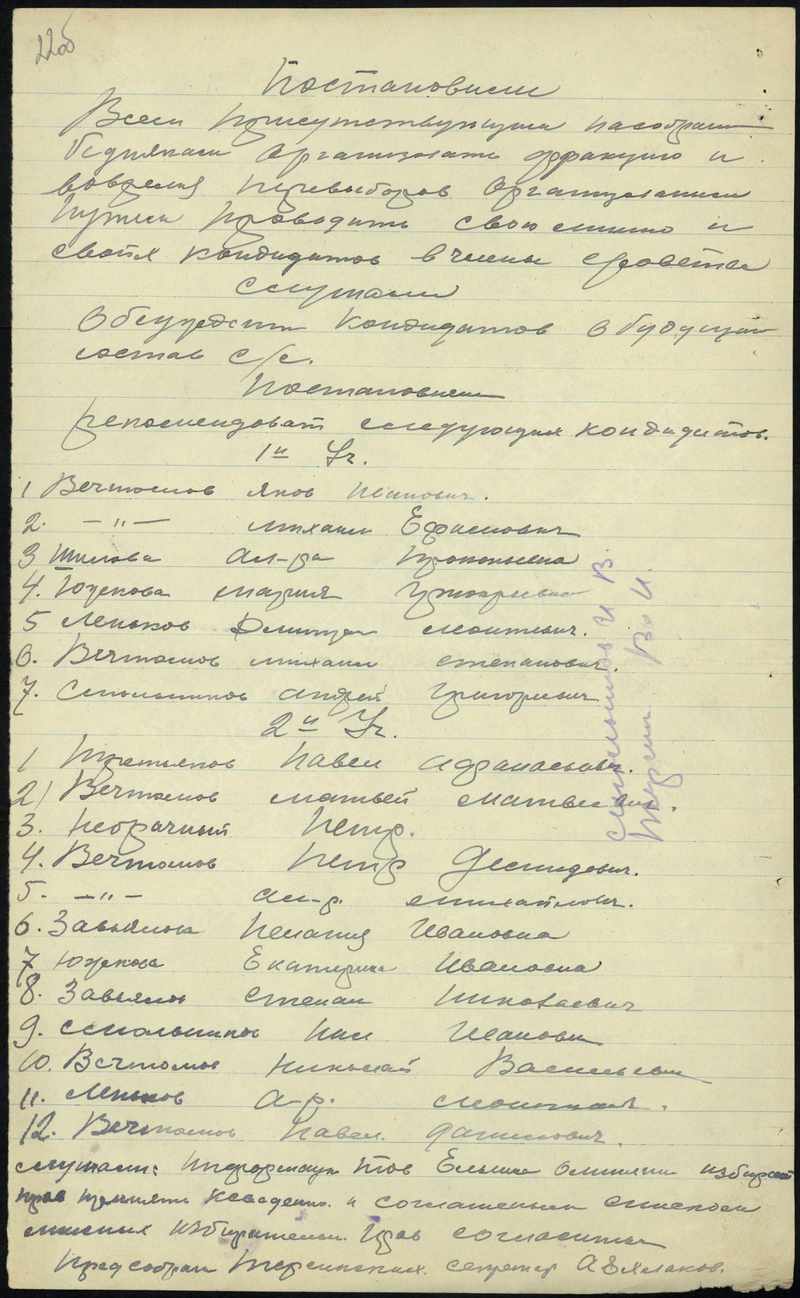 22об
Постановили
Всем присутствующим на собрании
беднякам организовать фракцию и
вовремя перевыборов организованным
путем проводить свою линию и
своих кандидатов в члены совета
Слушали
Обсуждали кандидатов в будущий
состав с/с.
Постановили
рекомендоват следующих кондидатов.
1й Уч.
1 Вечтомов Яков Иванович.
2. —"— Михаил Ефимович
3 Шилова Ал-ра Прокопьевна
4. Юдекова Мария Григорьевна
5 Леньков Дмитри Леонтьевич.
6. Вечтомов Михаил Степанович.
7. Смольников Андрей Григорьевич
2й Уч.
1 Третьяков Павел Афанасьевич.
2) Вечтомов Матвей Матвеевич.
3. Невзрачный Петр.
4. Вечтомов Петр Демидович.
5. —"— Ал-р. Михайлович.
6. Завьялова Пелагия Ивановна
7 Юдекова Екатерина Ивановна
8. Завьялов Степан Николаевич
9. Смольников Иванович
10. Вечтомов Николай Васильевич
11. Леньков Леонтьевич.
12. Вечтомов Павел Данилович.
Слушали: Информацию тов Ельшина о лишении избират
прав принять к сведению и с оглашенным списком
лишеных избирательн. прав согласится
Пред собрания секретар
Смольников И В.
В. И.